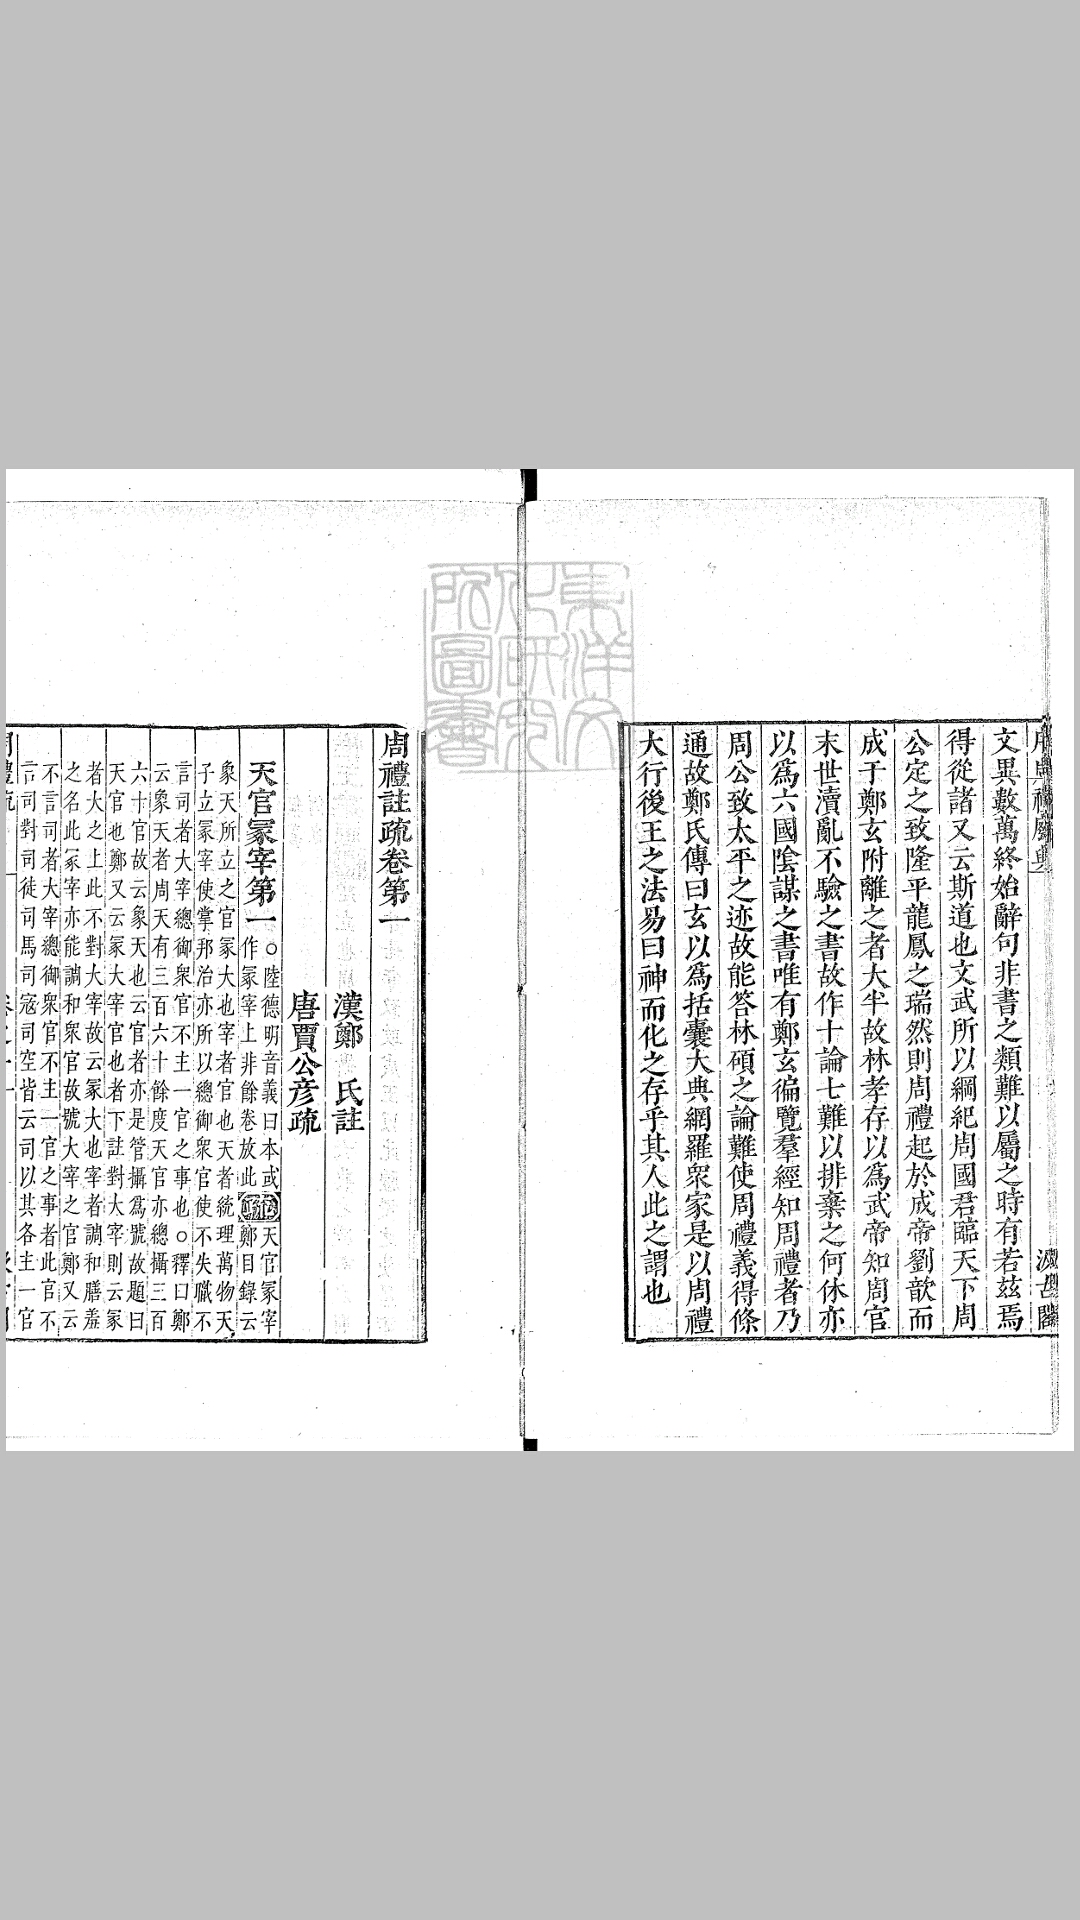 文異數萬終始辭句非書之類難以屬之時有若茲焉
得從諸又云斯道也文武所以綱紀周國君臨天下周
公定之致隆平龍鳳之瑞然則周禮起於成帝劉歆而
成于鄭玄附離之者大半故林孝存以為武帝知周官
末世瀆亂不驗之書故作十論七難以排棄之何休亦
以為六國陰謀之書唯有鄭玄徧覽羣經知周禮者乃
周公致太平之迹故能答林碩之論難使周禮義得條
通故鄭氏傳曰玄以為括囊大典網羅眾家是以周禮
大行後王之法易曰神而化之存乎其人此之謂也
東洋文化研究所圖書
周禮註疏卷第一
漢鄭 氏註
唐賈公彥疏
天官冢宰第一
○陸德明音義曰本或
作冢宰上非餘卷放此
疏
天官冢宰
鄭目錄云
象天所立之官冢大也宰者官也天者統理萬物天
子立冢宰使掌邦治亦所以總御衆官使不失職不
言司者大宰總御衆官不主一官之事也○釋曰鄭
云象天者周天有三百六十餘度天官亦總攝三百
六十官故云象天也云官者亦是管攝爲號故題曰
天官也鄭又云冢大宰官也者下註對大宰則云冢
者大之上此不對大宰故云冢大也宰者調和膳羞
之名此冢宰亦能調和衆官故號大宰之官鄭又云
不言司者大宰總御衆官不主一官之事者此官不
言司對司徒司馬司寇司空皆云司以其各主一官